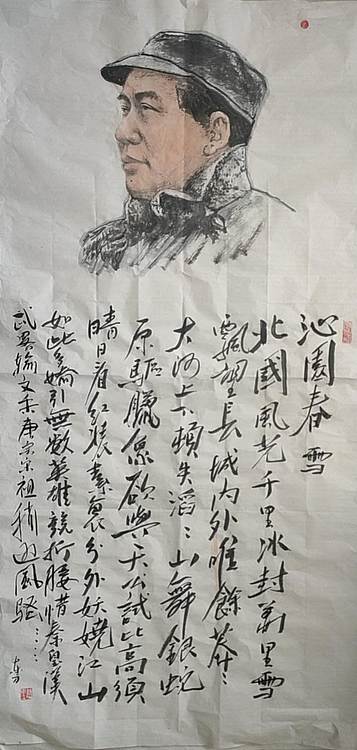 沁園春 雪
北國風光千里冰封萬里雪
飄望長城内外唯餘莽〻
大河上下頓失滔〻山舞銀蛇
原驅臘象欲與天公試比高須
晴日看紅裝素裹分外妖嬈江山
如此多嬌引無數英雄競折腰惜秦皇漢
武畧輸文采唐宗宋祖稍遜風騷……